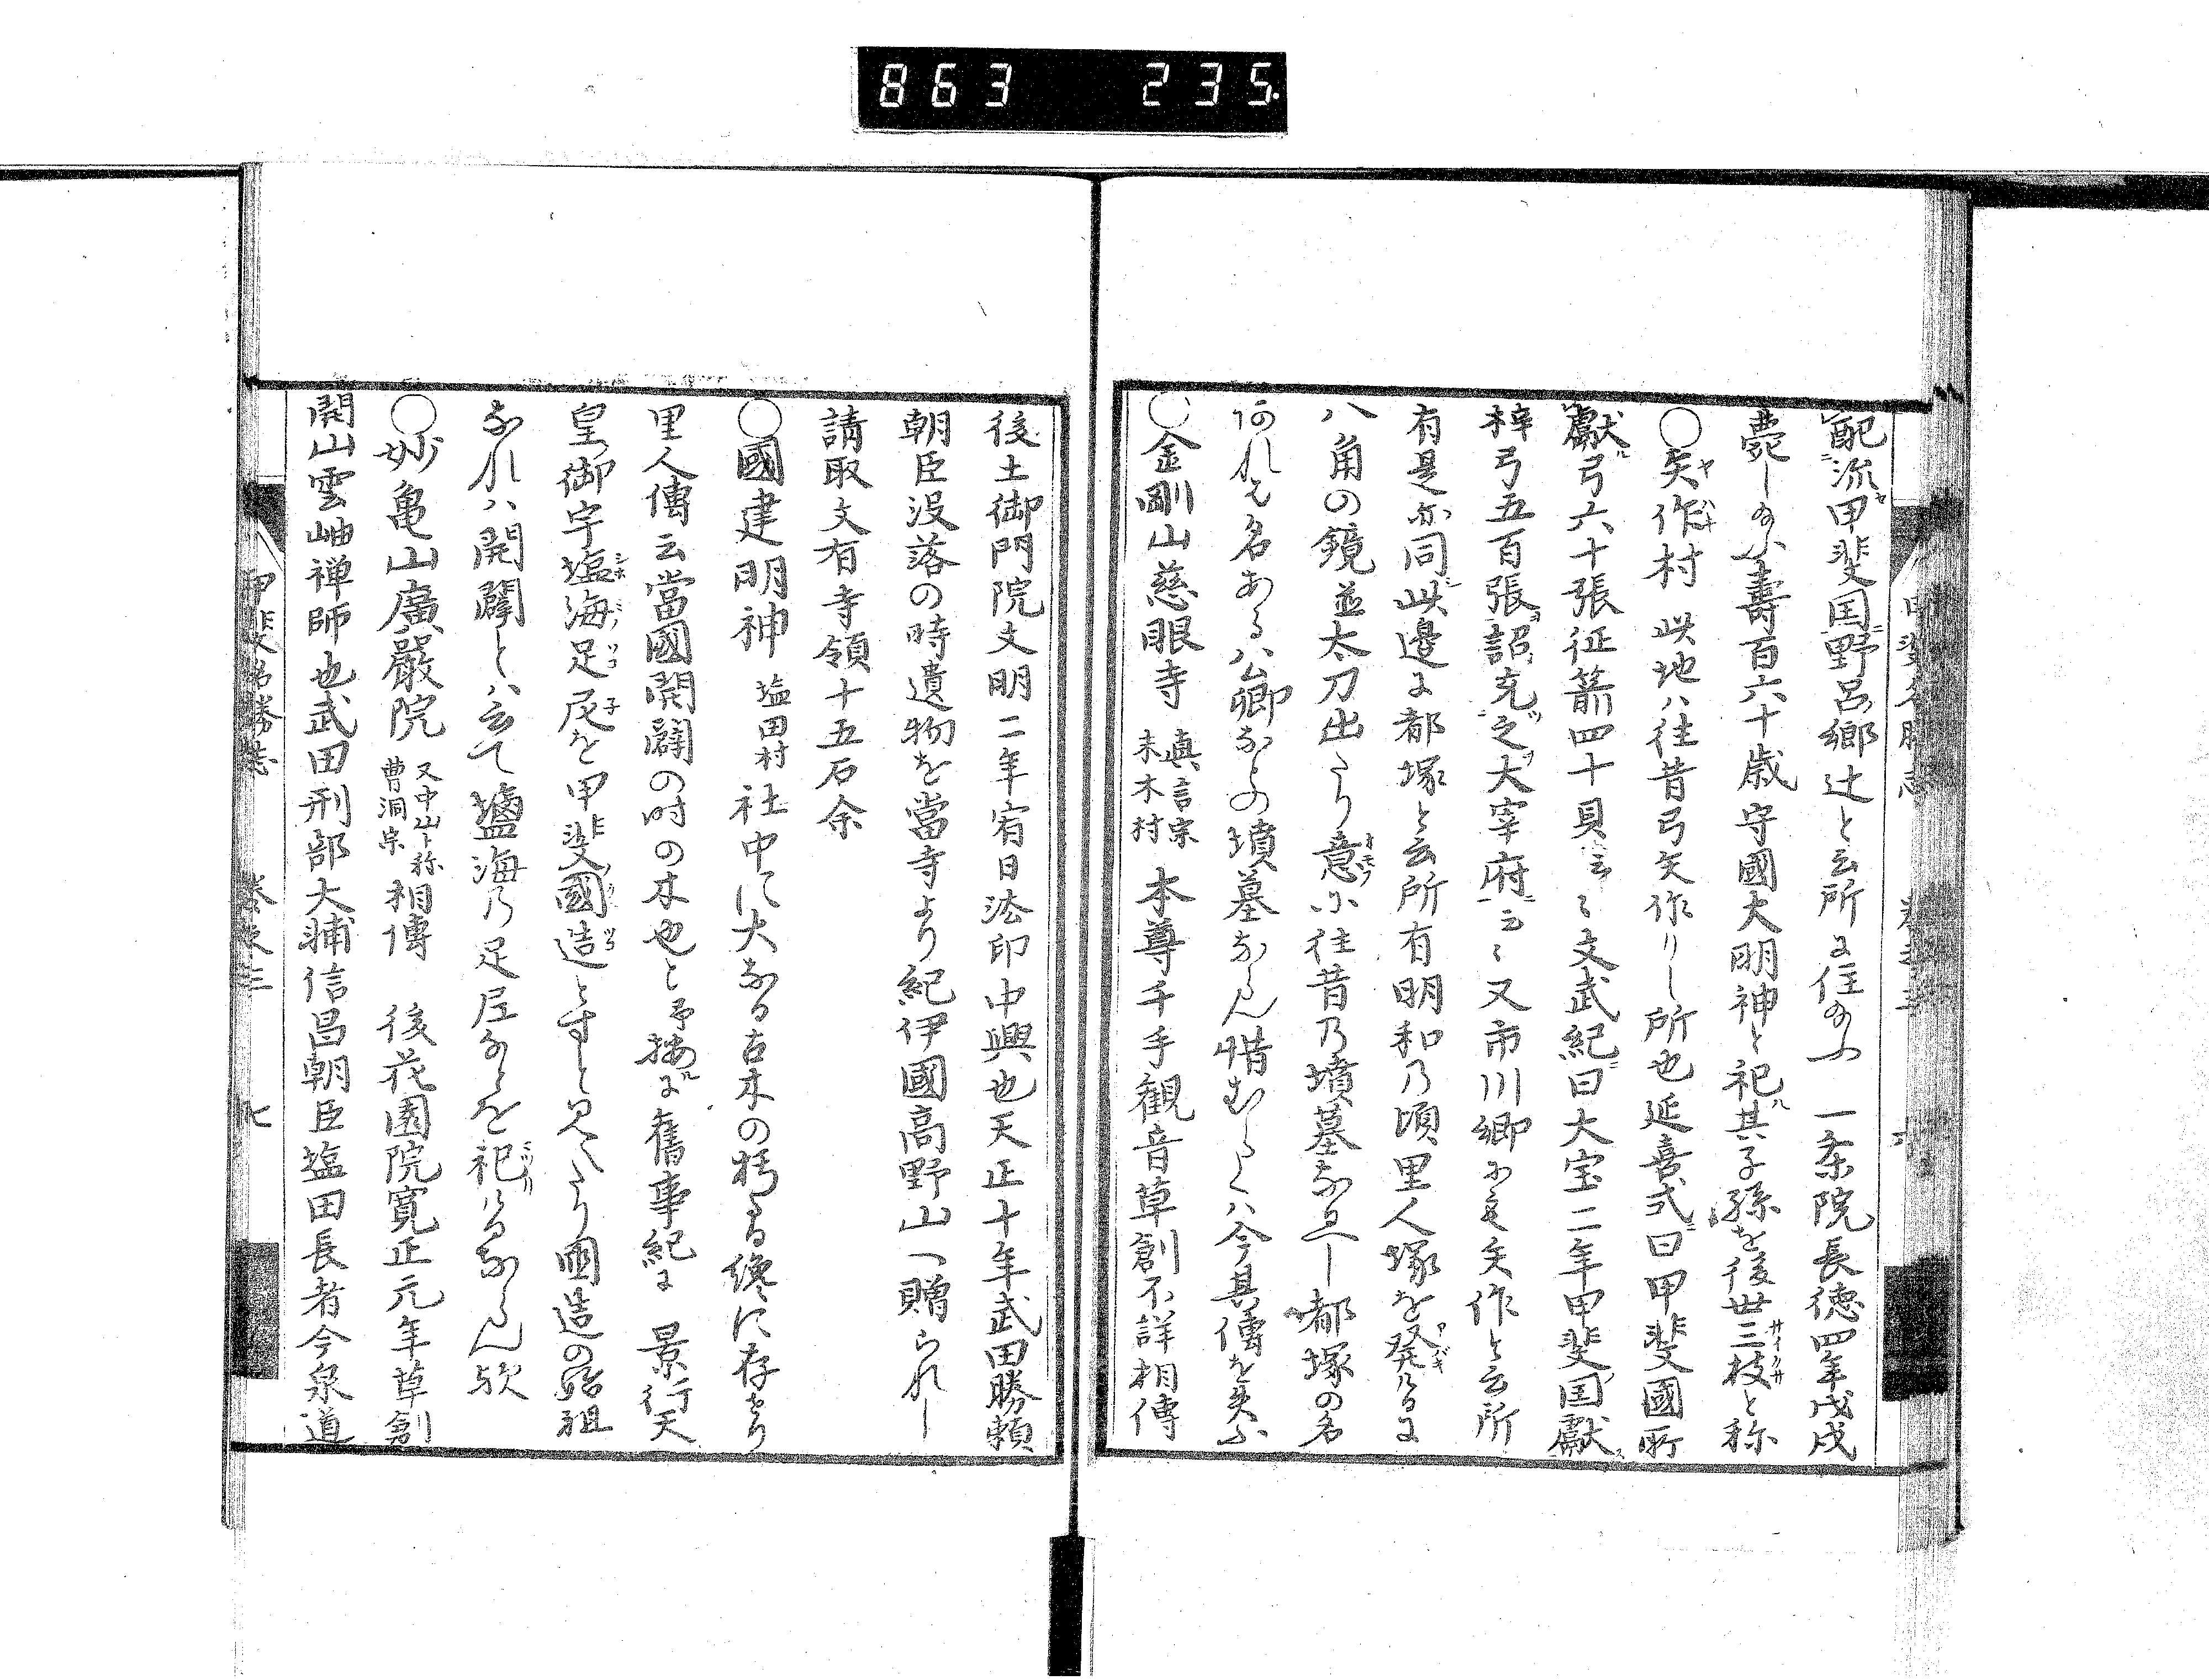 863 235.
配流甲斐国野呂郷辻と云所に住給ふ 一条院長徳四年戊戌
薨し給ふ壽百六十歳守國大明神と祀其子孫を後世三枝と称
〇矢作村 此地ハ往昔弓矢作りし所也延喜式曰甲斐國所
獻弓六十張征箭四十具云々文武紀曰大宝二年甲斐国獻
梓弓五百張詔充之大宰府云々又市川郷にも矢作と云所
有是に同此邊に都塚と云所有明和乃頃里人塚を発けるに
八角の鏡並太刀出たり意ふに往昔乃墳墓なるへし都塚の名
何れも名ある公卿なとの墳墓ならん惜むらくハ今其傳を失ふ
〇金剛山慈眼寺 真言宗 末木村 本尊千手観音草創不詳相傳
後土御門院文明二年宥日法印中興也天正十年武田勝頼
朝臣没落の時遺物を當寺より紀伊國高野山へ贈られし
請取文有寺領十五石余
〇國建明神 塩田村 社中に大なる古木の朽たる纔に存せり
里人傳云當國開闢の時の木也と予按に舊事紀に 景行天
皇御宇塩海足尼を甲斐國造とすと見へたり國造の始祖
なれハ開闢とハ云て鹽海乃足尼なとを祀けるならん欤
〇妙亀山廣嚴院 又中山ト称 曹洞宗 相傳 後花園院寛正元年草創
開山雲岫禅師也武田刑部大輔信昌朝臣塩田長者今泉道
甲斐名勝志 巻之三 七